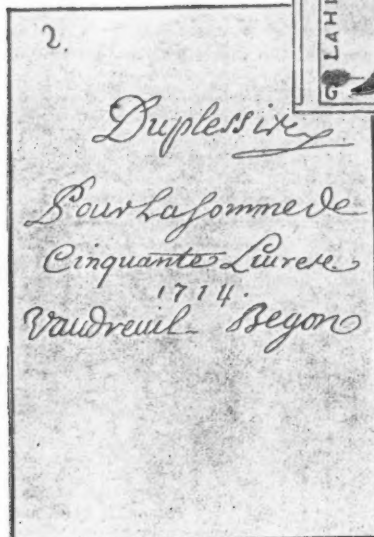 2.
G LAHI
Duplessire
Pour La somme de
Cinquante Livrese
1714.
Vaudreuil Begon